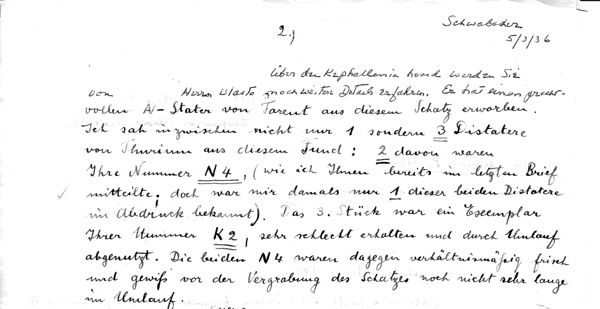 2.)
Schwabacher
5/3/36
über den Kephallenia hoard werden Sie
von Herrn Vlasto noch weitere Details erfahren. Er hat einen pracht-
vollen A-Stater von Tarent aus diesem Schatz erworben.
Ich sah inzwischen nicht nur 1 sondern 3 Distatere
von Thurium aus diesem Fund: 2 davon waren
Ihre Nummer N4, (wie ich Ihnen bereits im letzten Brief
mitteilte; doch war mir damals nur 1 dieser beiden Distatere
im Abdruck bekannt). Das 3. Stück war ein Exemplar
Ihrer Nummer K2, sehr schlecht erhalten und durch Umlauf
abgenutzt. Die beiden N4 waren dagegen verhältnismäßig frisch
und gewiß vor der Vergrabung des Schatzes noch nicht sehr lange
im Umlauf.